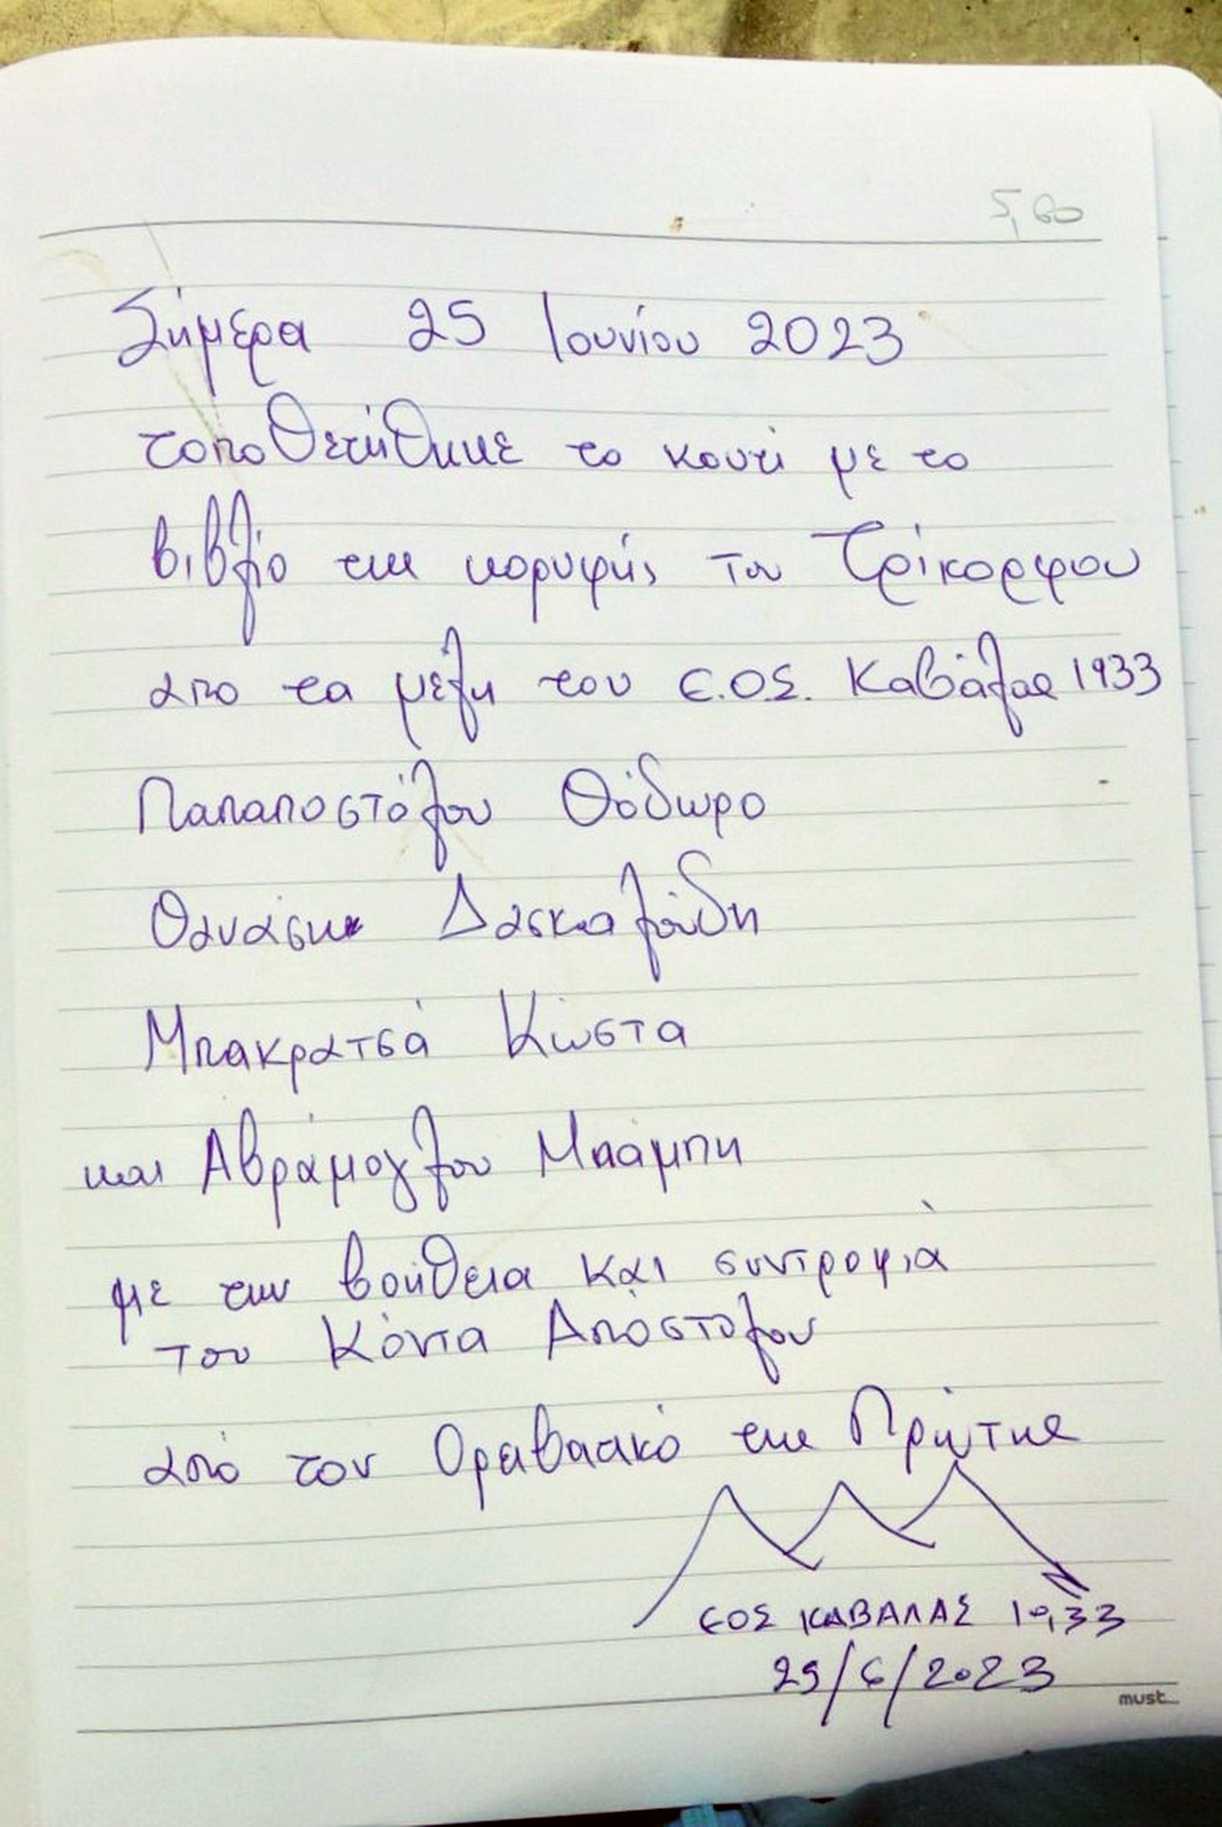 5,60
Σήμερα 25 Ιουνίου 2023
τοποθετήθηκε το κουτί με το
βιβλίο της κορυφής του Τρίκορφου
απο τα μέλη του Ε.Ο.Σ. Καβάλας 1933
Παπαποστόλου Θόδωρο
Θανάση Δασκαλούδη
Μπακρατσά Κώστα
και Αβράμογλου Μπάμπη
με την βοήθεια και συντροφιά
του Κόντα Απόστολου
από τον Ορειβατικό της Πρώτης
ΕΟΣ ΚΑΒΑΛΑΣ 1933
25/6/2023
must